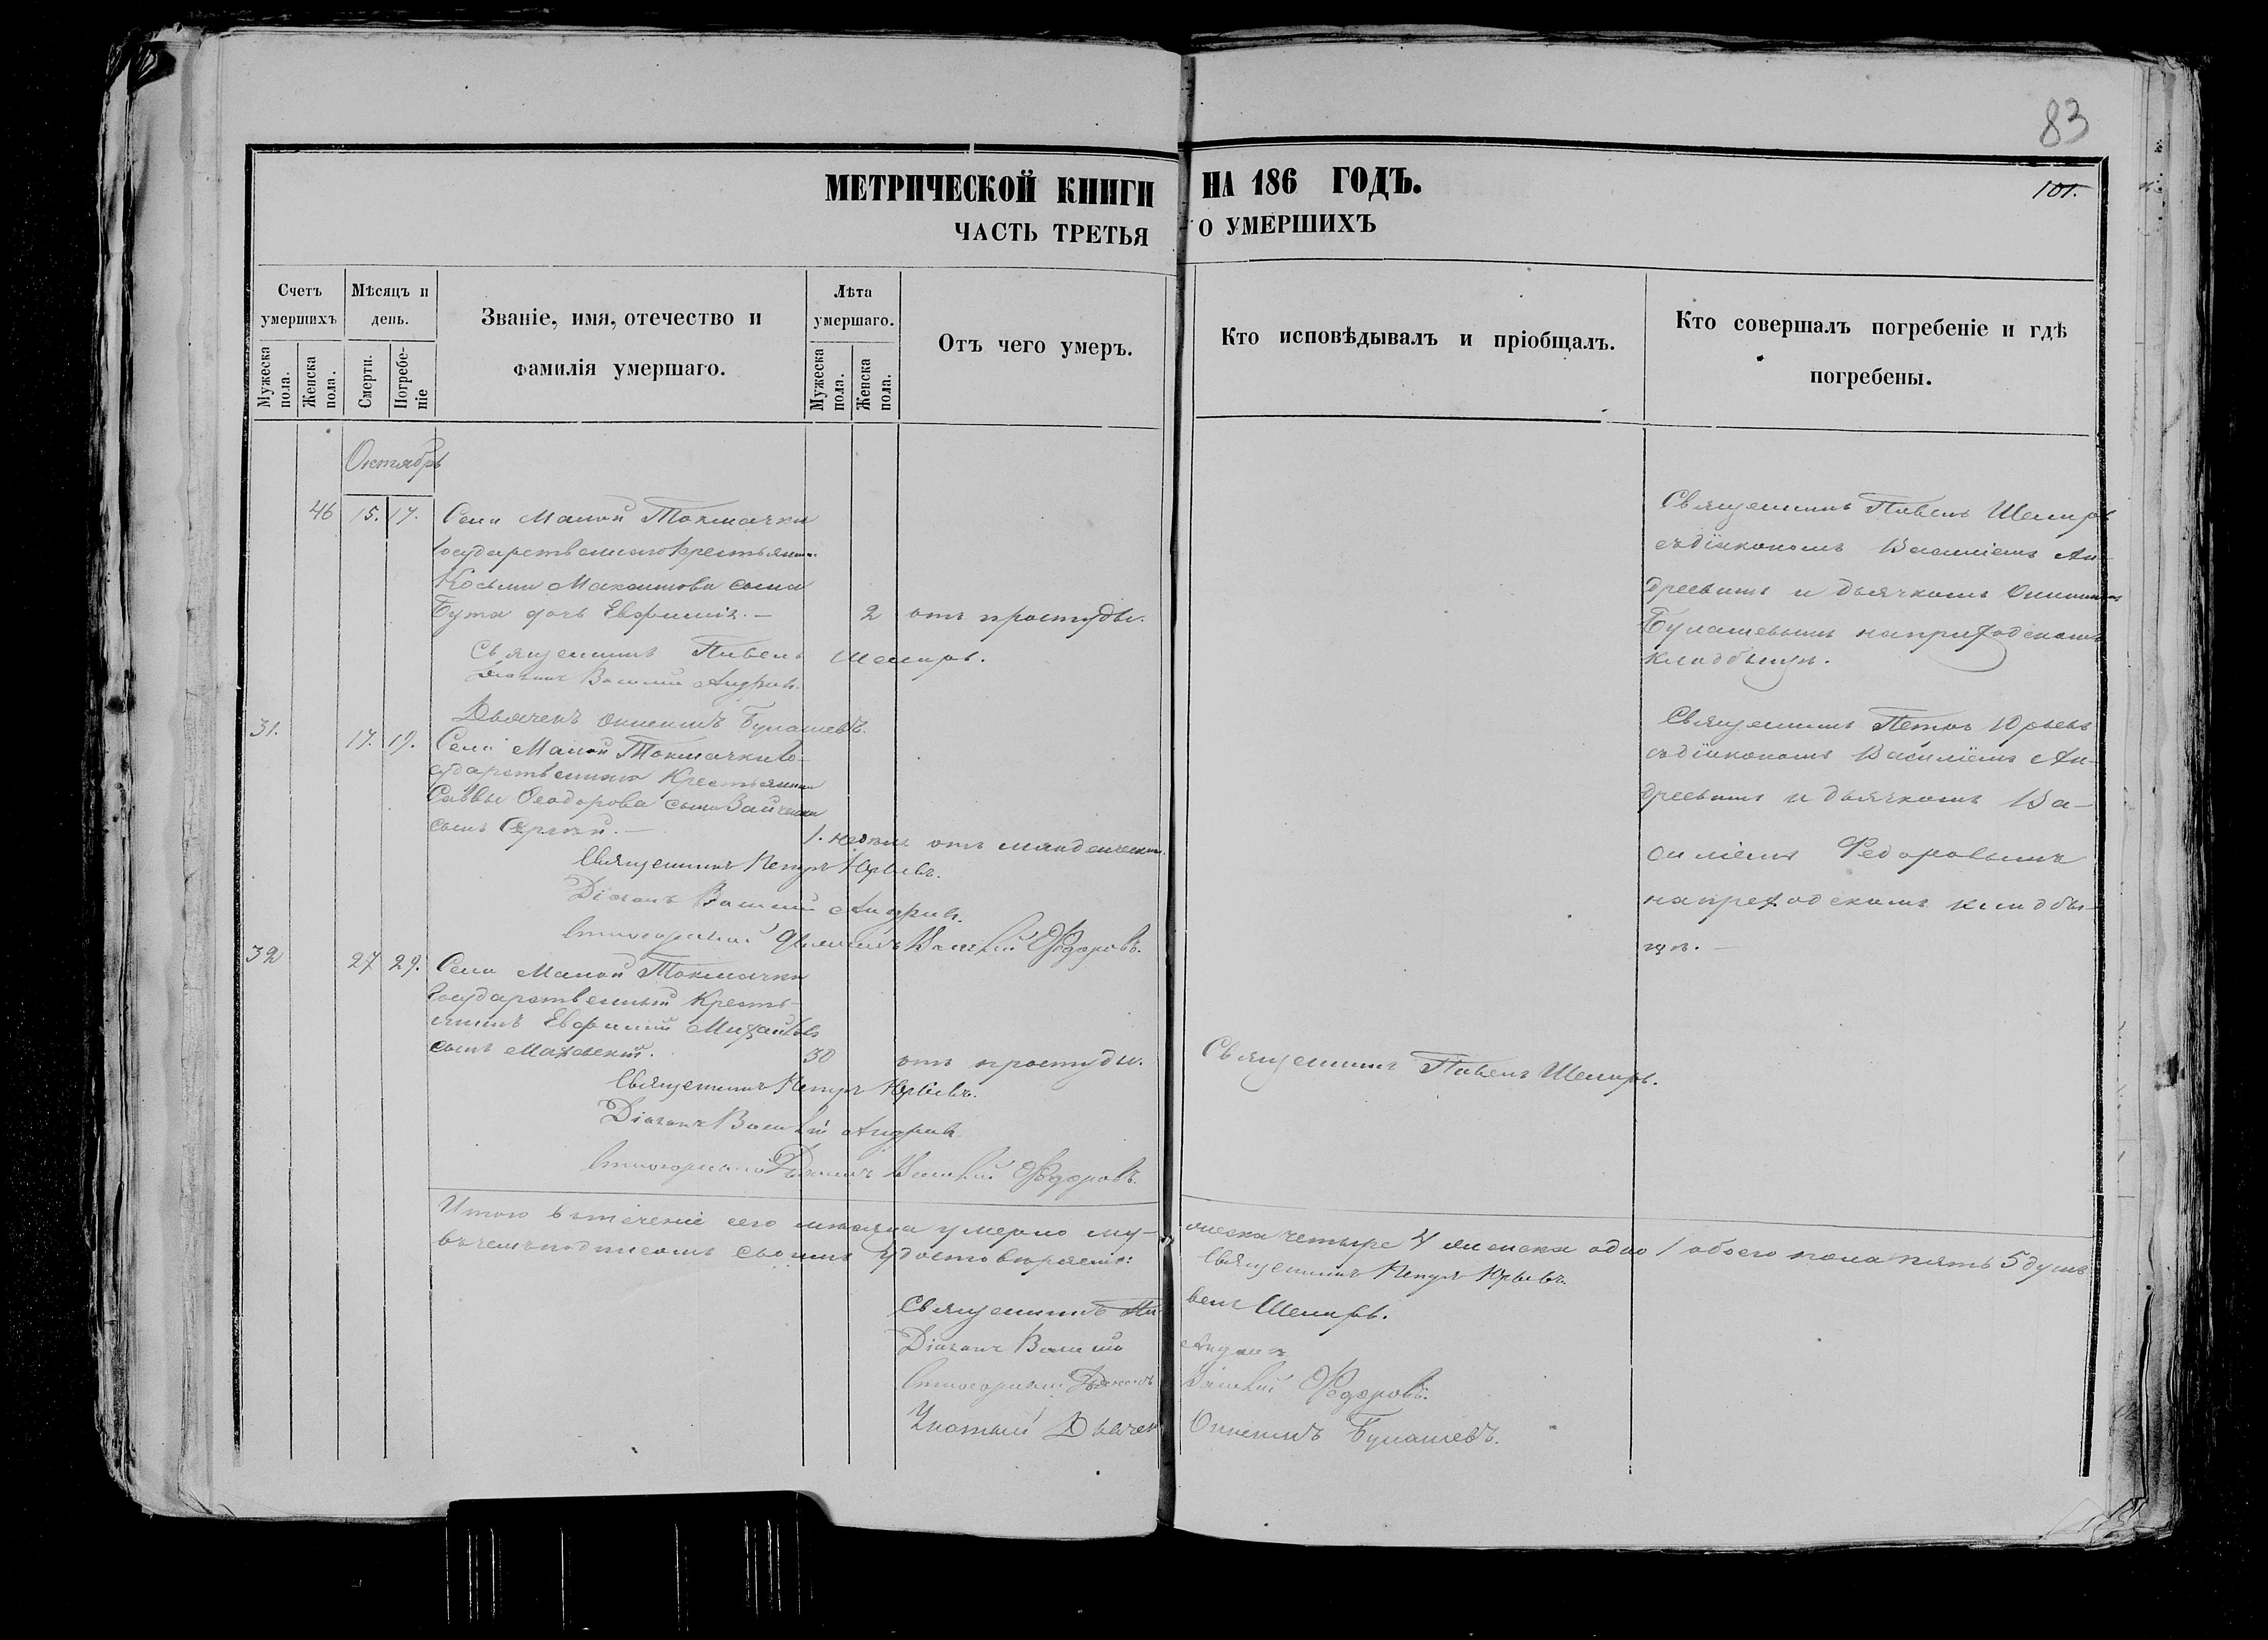 83
МЕТРИЧЕСКОЙ КНИГИ НА 186 ГОДЪ.
101.
ЧАСТЬ ТРЕТЬЯ О УМЕРШИХЪ
Счетъ умершихъ
Мужеска пола.
Женска пола.
Мѣсяцъ и день.
Смерти.
Погребеніе
Званіе, имя, отечество и фамилія умершаго.
Лѣта умершаго.
Мужеска пола.
Женска пола.
Отъ чего умеръ.
Кто исповѣдывалъ и пріобщалъ.
Кто совершалъ погребеніе и гдѣ погребены.
Октябрь
46 15. 17. Села Малой Токмачки
Государственнаго Крестьянина
Косьмы сына
Бута дочь Евфимія. — 2 отъ простуды.
Священникъ Павелъ
Діаконъ Василій
Дьячекъ Онисимъ Булашевъ.
Священникъ Павелъ
съ діакономъ Василіемъ Ан-
дреевымъ и дьячкомъ
Булашевымъ на приходскомъ
кладбищѣ.
31. 17. 19. Села Малой Токмачки Го-
сударственнаго Крестьянина
Саввы Ѳеодорова сына
сынъ Сергѣй. — 1. недѣли отъ младенческой.
Священникъ Петръ Юрьевъ.
Діаконъ Василій
Василій Ѳедоровъ.
Священникъ Петръ Юрьевъ
съ діакономъ Василіемъ Ан-
дреевымъ и дьячкомъ Ва-
силіемъ Федоровымъ
на преходскомъ кладби-
щѣ. —
32 27 29. Села Малой Токмачки
Государственный Кресть-
янинъ Евфимій Михайловъ
сынъ 30 отъ простуды.
Священникъ Павелъ
Священникъ Петръ Юрьевъ.
Діаконъ Василій
Василій Ѳедоровъ.
Итого в теченіе сего мѣсяца умерло му- жеска четыре 4 женска одно 1 обоего пола пять 5 душъ
въ чемъ подписомъ своимъ удостовѣряемъ:
Священникъ Петръ Юрьевъ.
Священникъ Па велъ
Діаконъ Василій
Василій Ѳедоровъ.
Дьячек Онисимъ Булашевъ.